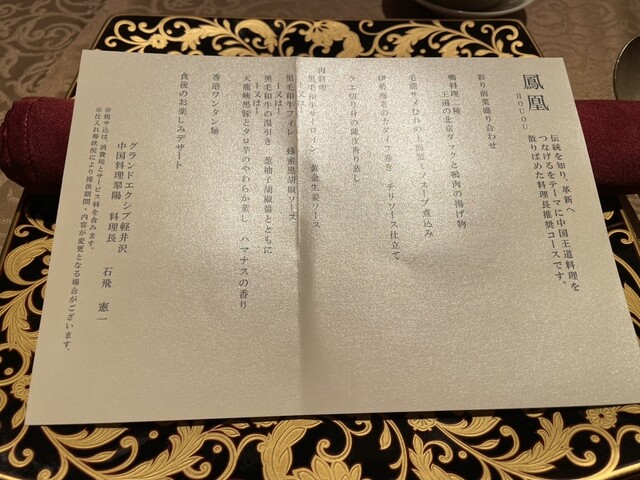 鳳凰
HOUOU
伝統を知り、革新へ
つなげるをテーマに中国王道料理を
散りばめた料理長推奨コースです。
彩り前菜盛り合わせ
鴨料理二種
王道の北京ダックと鴨肉の揚げ物
毛鹿サメひれの上海蟹ミソスープ煮込み
伊勢海老のカダイフ巻き チリソース仕立て
クエ切り身の陳皮香り蒸し
肉料理
黒毛和牛サーロイン 黄金生姜ソース
ー又はー
黒毛和牛フィレ 蜂蜜黒胡椒ソース
ー又はー
黒毛和牛の湯引き 葱柚子胡椒醬とともに
ー又はー
天龍峡黒豚とタロ芋のやわらか蒸し ハマナスの香り
香港ワンタン麺
食後のお楽しみデザート
グランドエクシブ軽井沢
中国料理翠陽 料理長 石飛 憲一
※税サ込は、消費税とサービス料を含みます。
※仕入れ等状況により提供期間・内容が変更となる場合がございます。